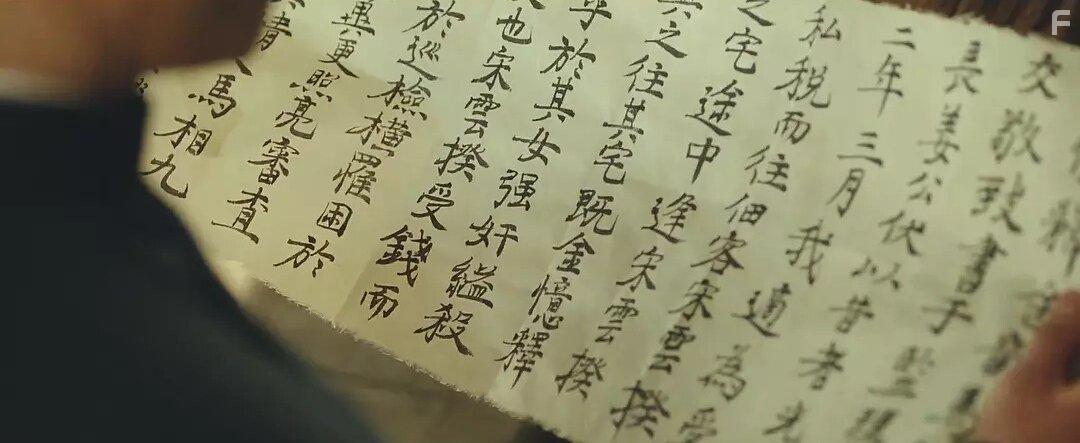 交敬致書于監
長姜公伏以昔者光
二年三月我適為受
私稅而往佃客宋雲揆
之宅途中逢宋雲揆
之往其宅既金憶釋
乎於其女強奸縊殺
也宋雲揆受錢而
於巡檢橫罹困於
更照亮審査
馬相九
F